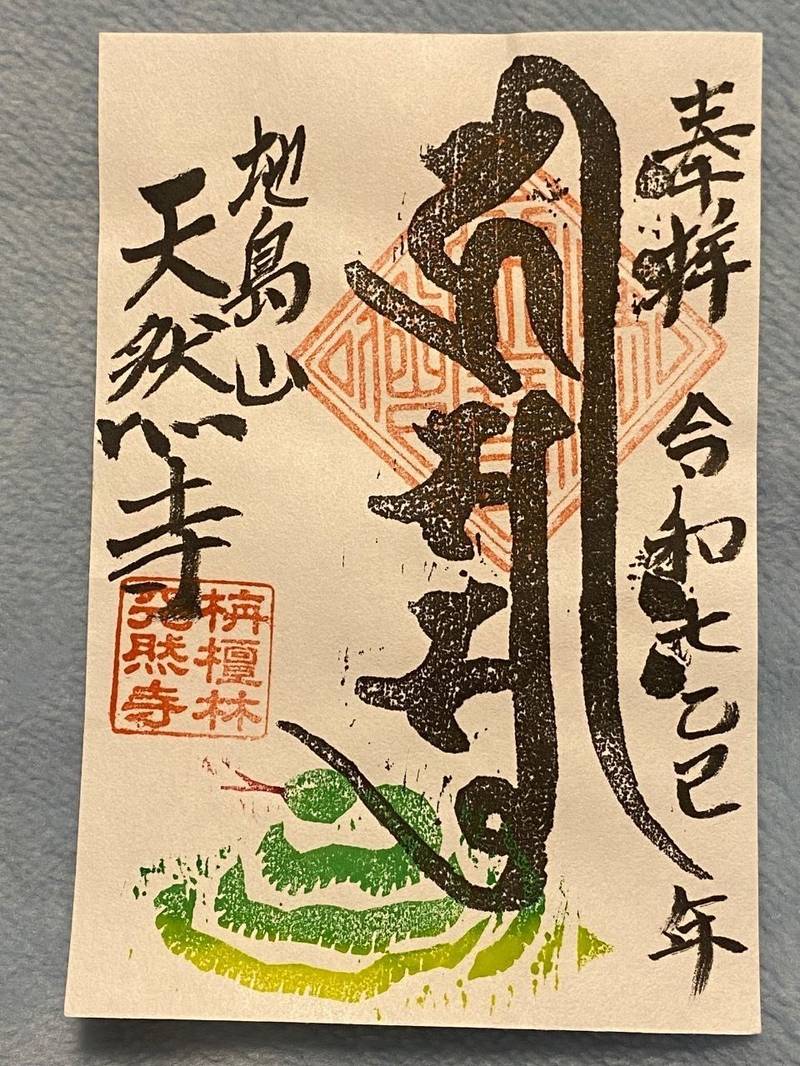 奉拝 令和七乙巳年
地島山
天然寺
栴檀林
天然寺